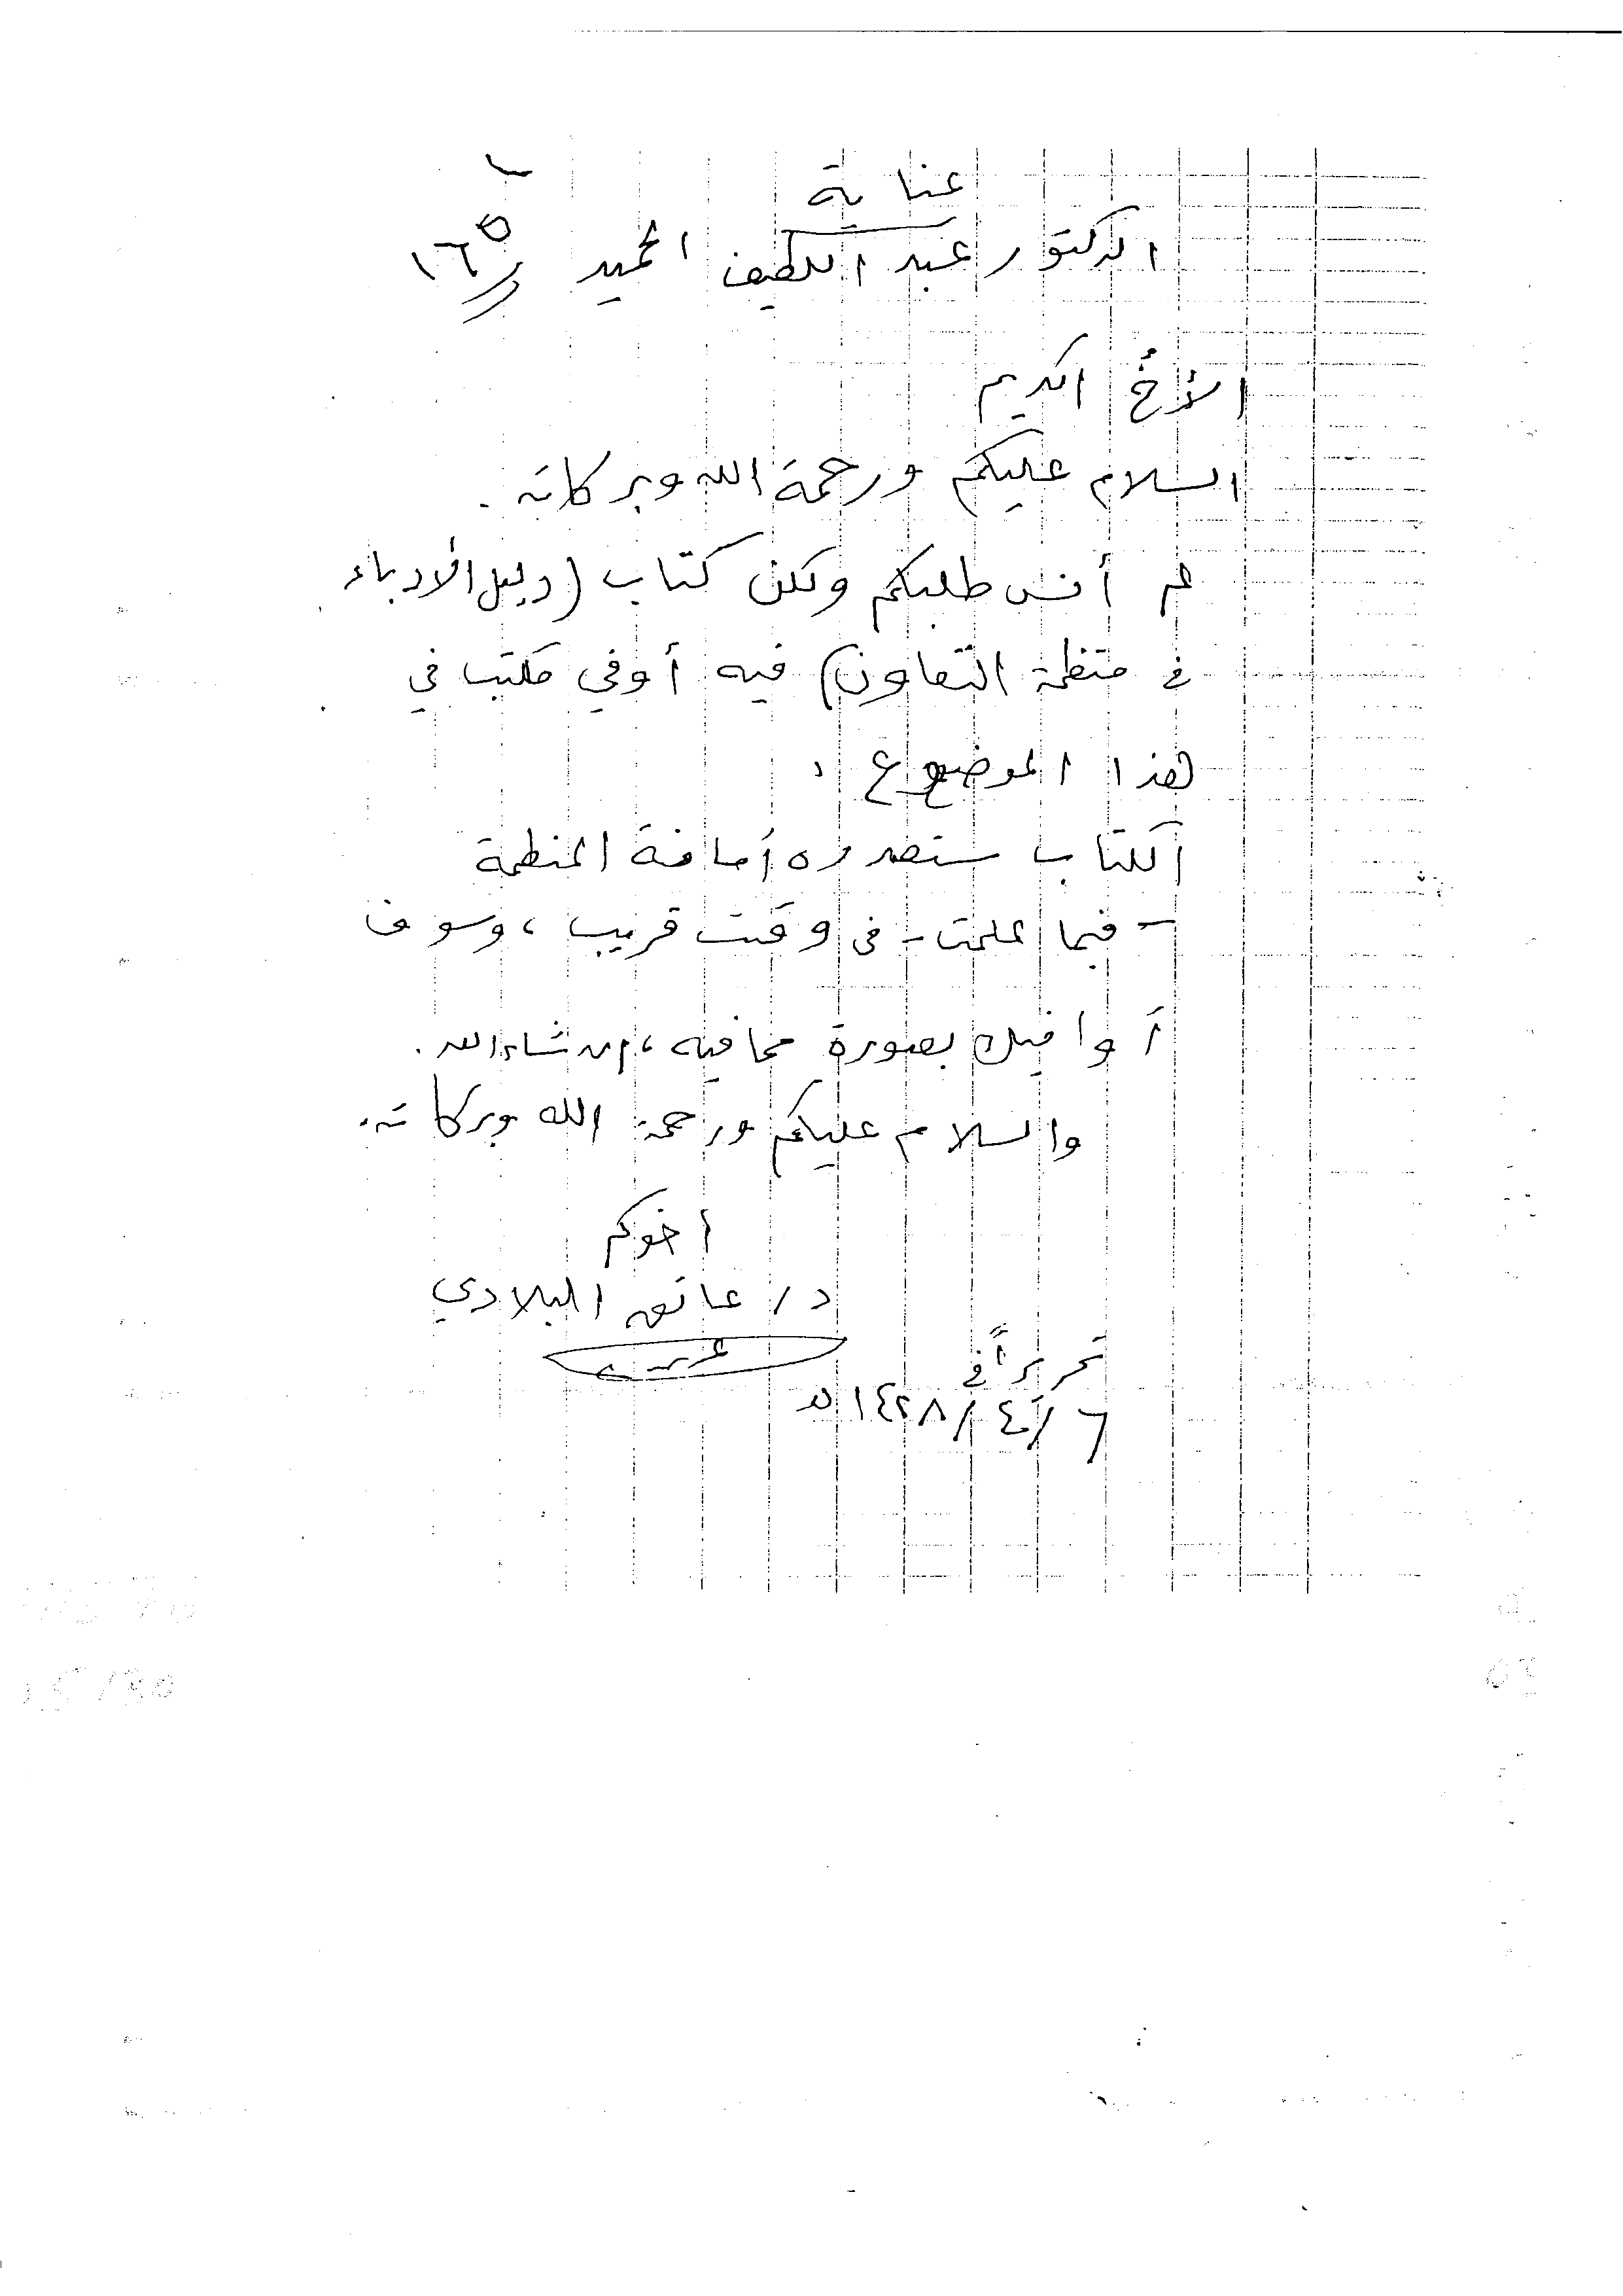 عناية
الدكتور عبد اللطيف الحميد
الأخُ الكريم
السلام عليكم ورحمة الله وبركاته .
لم أنس طلبكم ولكن كتاب (دليل الأدباء
في منظمة التعاون) فيه أوفي مكتب في
هذا الموضوع .
الكتاب ستصدره أمانة المنظمة
- فيما علمت - في وقت قريب ، وسوف
أوافيك بصورة مجانيه ، إن شاء الله .
والسلام عليكم ورحمة الله وبركاته .
أخوكم
د / عاتق البلادي
تحريراً في
٦ / ٤ / ١٤٢٨ه